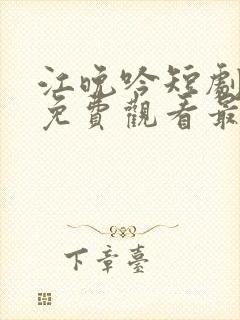 江晚吟短劇
免費觀看最
下章臺